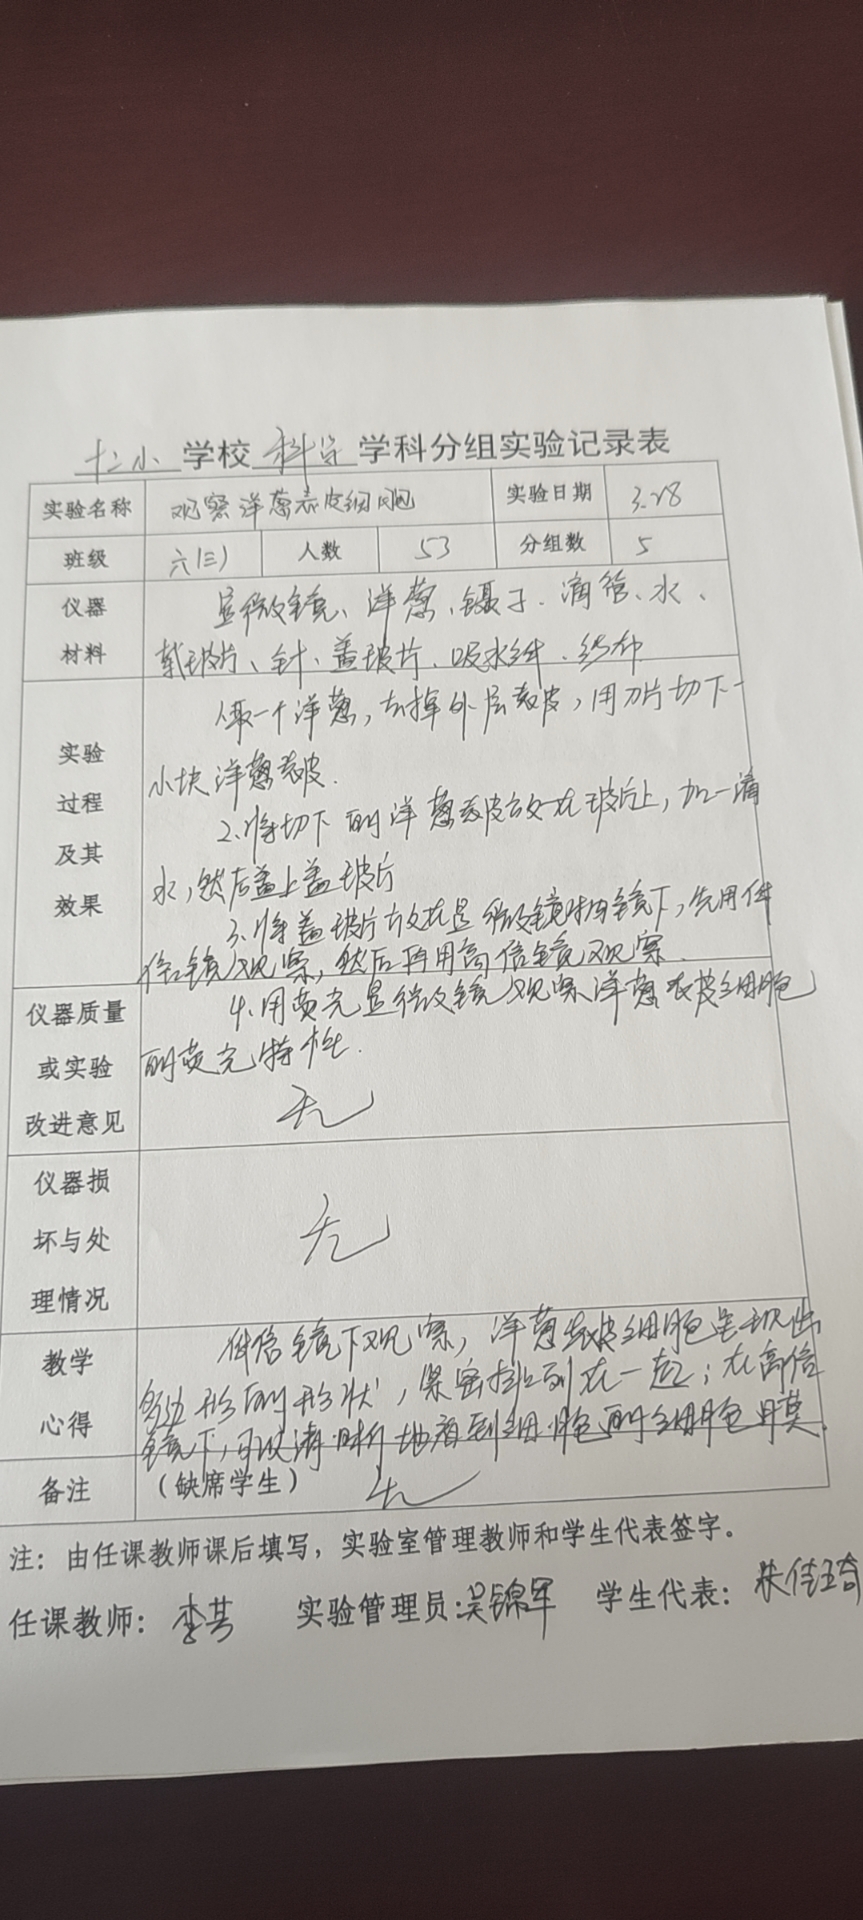 十二小 学校 科学 学科分组实验记录表
实验名称 观察洋葱表皮细胞 实验日期 3.28
班级 六(三) 人数 53 分组数 5
仪器 显微镜、洋葱、镊子、滴管、水、
材料 载玻片、针、盖玻片、吸水纸、纱布
实验 1取一个洋葱，去掉外层表皮，用刀片切下一
过程 小块洋葱表皮.
及其 2.将切下的洋葱表皮放在玻片上，加一滴
效果 水，然后盖上盖玻片
3.将盖玻片放在显微镜物镜下，先用低
倍镜观察，然后再用高倍镜观察.
仪器质量 4.用荧光显微镜观察洋葱表皮细胞
或实验 的荧光特性.
改进意见 无
仪器损
坏与处 无
理情况
教学 低倍镜下观察，洋葱表皮细胞呈现出
心得 多边形的形状，紧密排列在一起；在高倍
镜下，可以清晰地看到细胞的细胞膜.
备注 （缺席学生） 无
注：由任课教师课后填写，实验室管理教师和学生代表签字。
任课教师： 李 实验管理员:吴锦军 学生代表： 朱佳